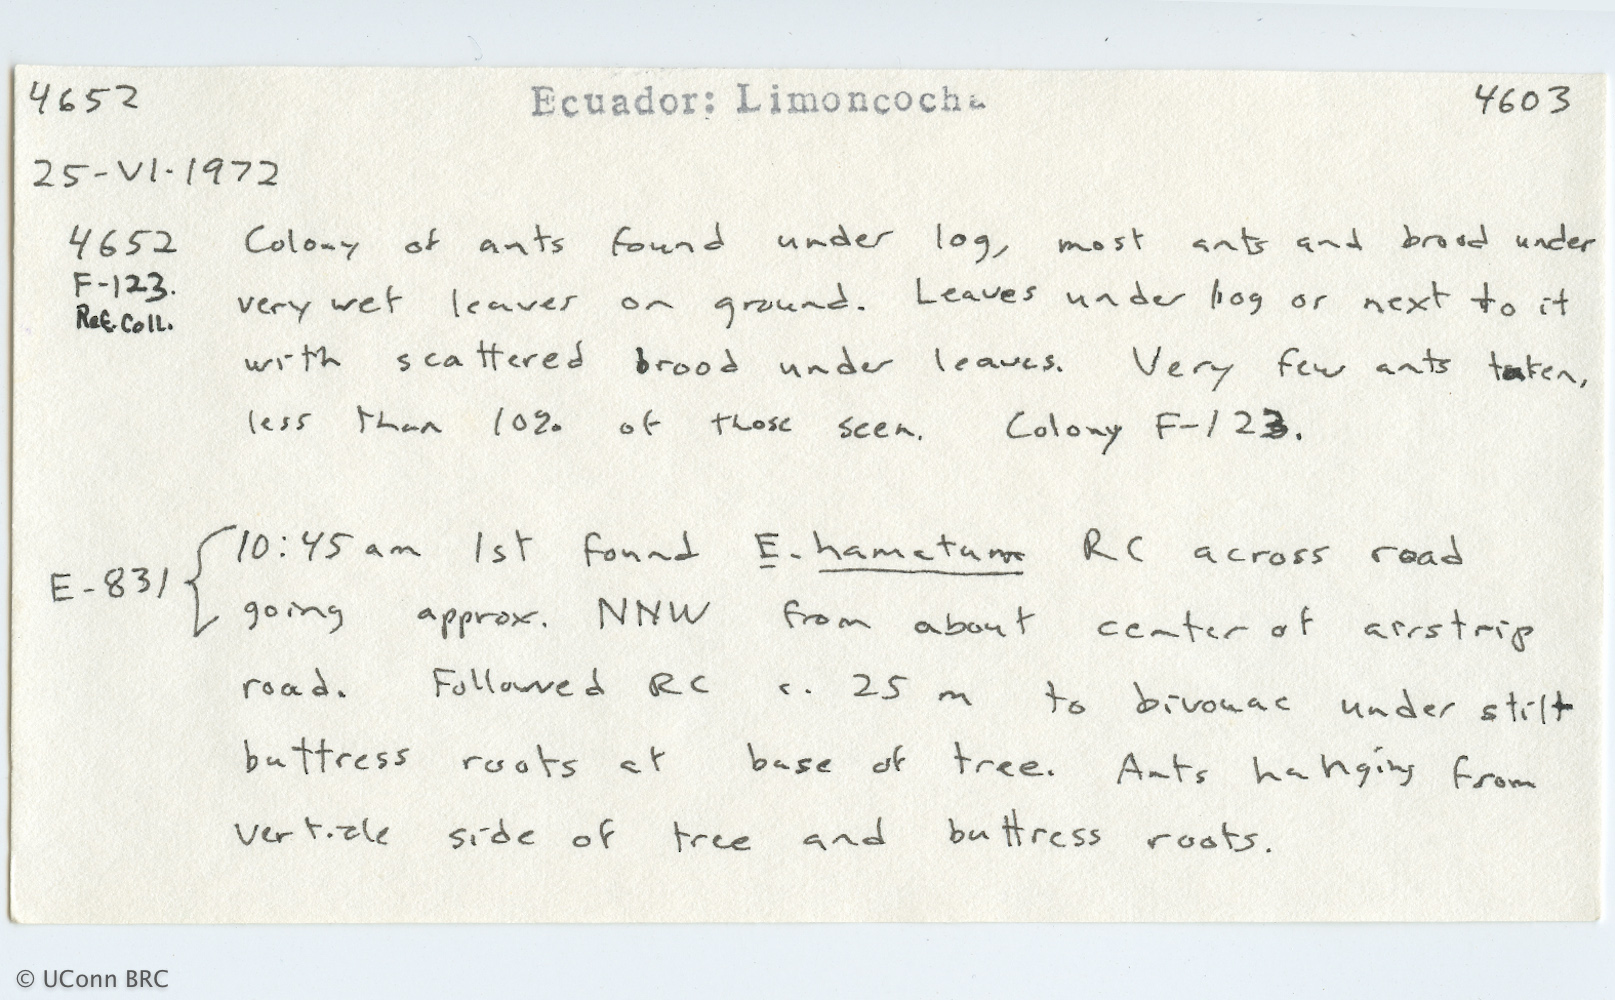 4652 Ecuador: Limoncocha 4603
25-VI-1972
4652 Colony of ants found under log, most ants and brood under
F-123. very wet leaves on ground. Leaves under log or next to it
Ref. Coll.
with scattered brood under leaves. Very few ants taken,
less than 10% of those seen. Colony F-123.
10:45 am 1st found E. hamatum RC across road
E-831
going approx. NNW from about center of airstrip
road. Followed RC c. 25 m to bivouac under stilt
buttress roots at base of tree. Ants hanging from
verticle side of tree and buttress roots.
© UConn BRC